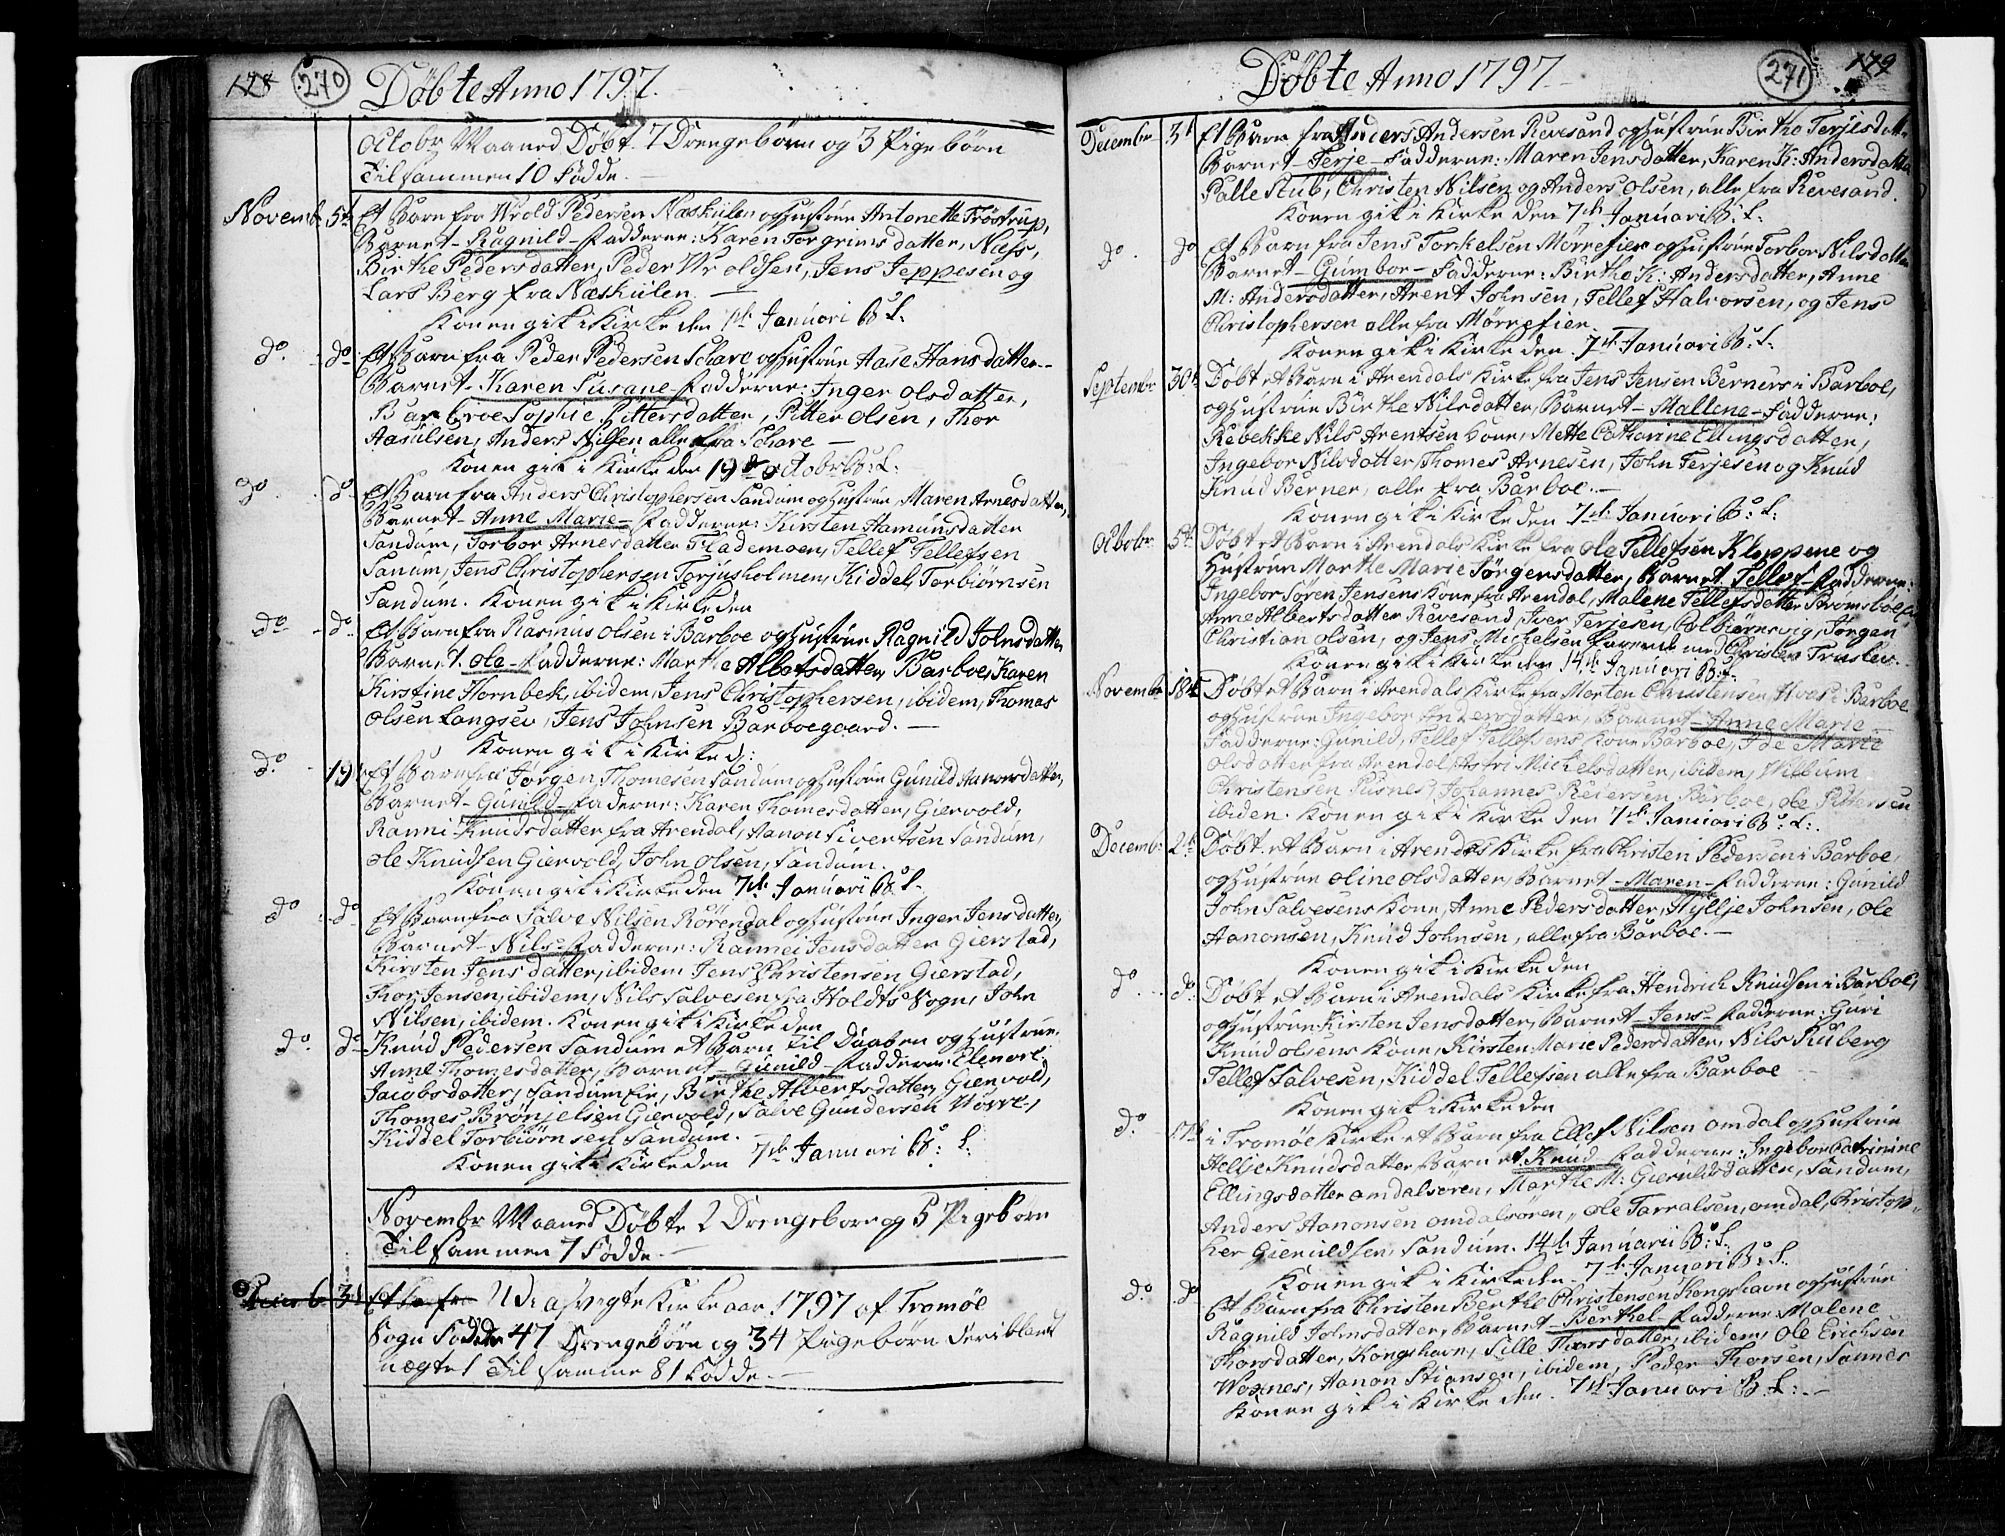 128 270 Döbte Anno 1797.
Octobr Maaned Döbt 7 Drengebörn og 3 Pigebörn
Tilsammen 10 Födde.
Novemb 5t Et Barn fra Wrold Pedersen Næskilen og Hustrue Antonette Tröstrup,
Barnet - Ragnild - Fadderne: Karen Torgrims datter, Næss,
Birthe Pedersdatter, Peder Wroldsen, Jens Jeppesen og
Lars Berg fra Næskilen.
Konen gik i Kirke den 1st Januari
do do Et Barn fra Peder Pedersen Schare og Hustrue Aase Hansdatter
Barnet - Karen Susane - Fadderne: Inger Olsdatter,
Barbroe Sophie Pittersdatter, Pitter Olsen, Thor
Aasulsen, Anders Nilsen alle fra Schare
Konen gik i Kirke den 19de Octobr
do do Et Barn fra Anders Christophersen Sandum og Hustrue Maren Arnesdatter,
Barnet - Anne Marie - Fadderne: Kirsten Hamunsdatter
Sandum, Torbor Arnesdatter Flademoen, Tellef Tellefsen
Sanum, Jens Christophersen Torjusholmen, Kiddel Torbiörnsen
Sandum. Konen gik i Kirke den
do do Et Barn fra Rasmus Olsen i Barboe og Hustrue Ragnild Johnsdatter
Barnet. Ole - Fadderne: Marthe Albertsdatter, Barboe, Karen
Kirstine Hornbek, ibidem, Jens Christophersen, ibidem, Thomas
Olsen Langsev, Jens Johnsen Barboegaard.
Konen gik i Kirke d:
do 19 Et Barn fra Jörgen Thomesen Sandum og Hustrue Gunild Aanonsdatter,
Barnet - Gunild - Fadderne: Karen Thomesdatter, Giervold,
Ranni Knudsdatter fra Arendal, Aanon Sivertsen Sandum,
Ole Knudsen Giervold, John Olsen, Sandum.
Konen gik i Kirke den 7de Januari
do do Et Barn fra Salve Nilsen Rörendal og Hustrue Inger Jensdatter,
Barnet - Nils - Fadderne: Rannei Jensdatter Gierstad,
Kirsten Jens datter, ibidem Jens Christensen Gierstad,
Thor Jensen, ibidem, Nils Salvesen fra Holdts Sogn, John
Nilsen, ibidem. Konen gik i Kirke den
do do Knud Pedersen Sandum et Barn til Daaben og Hustrue.
Anne Thomesdatter, Barnet - Gunild - Fadderne Elenore
Jacobsdatter, Sandumfier, Birthe Albertsdatter, Giervold,
Thomes Brönjelsen Giervold, Salve Gundersen Vorre,
Kiddel Torbiörnsen Sandum.
Konen gik i Kirke den 7de Januari
Novembr Maaned Döbte 2 Drengeborn og 5 Pigebörn
Tilsammen 7 Födde.
Decemb 31 Et Ba fra Udi afvigte Kirke aar 1797 af Tromöe
Sogn Födde 47 Drengebörn og 34 Pigebörn deriblandt
uægte 1 Tilsamme 81 Födde.
Döbte Anno 1797 271 179
Decembr 31 Et Barn fra Anders Andersen Revesand og Hustrue Birthe Terjesdatter
Barnet - Terje - Fadderne: Maren Jensdatter, Karen K: Andersdatter
Palle Stub, Christen Nilsen og Anders Olsen, alle fra Revesand.
Konen gik i Kirke den 7de Januari
do do Et Barn fra Jens Torkelsen Mörrefier og Hustrue Torbor Nilsdatter
Barnet - Gumbor - Fadderne: Birthe K: Andersdatter, Anne
M: Andersdatter, Arent Johnsen, Tellef Halvorsen, og Jens
Christophersen alle fra Mörrefier.
Konen gik i Kirke den 7de Januari
Septembr 30t Döbt et Barn i Arendals Kirke fra Jens Jensen Berners i Barboe,
og Hustrue Birthe Nilsdatter, Barnet - Mallene - Fadderne:
Rebekke Nils Arentsen Kone, Mette Cathrine Ellingsdatter,
Ingebor Nilsdatter, Thomes Arnesen, John Terjesen og Knud
Knud Berner, alle fra Barboe.
Konen gik i Kirke den 7de Januari
Octobr 5t Döbt et Barn i Arendals Kirke fra Ole Tellefsen Kloppene og
Hustrue Marthe Marie Jörgensdatter, Barnet Tellef - Fadderne:
Ingebor Sören Jensens Kone fra Arendal, Malene Tellefsdatter Brömsboe
Anne Albertsdatter Revesand, Iver Terjesen, Colbiörnsvig, Jörgen
Christian Olsen, og Jens Mickelsen
Konen gik i Kirke den 14de Januari
Novembr 18t Döbt et Barn i Arendals Kirke fra Morten Christensen Hvas i Barboe
og Hustrue Ingebor Andersdatter, Barnet - Anne Marie
Fadderne: Gunild, Tellef Tellefsens Kone Barboe, Ide Marie
Olsdatter fra Arendel, Astri Mickelsdatter, ibidem, Willum
Christensen Pusnes, Johannes Reiersen, Barboe, Ole Pittersen
ibidem. Konen gik i Kirke den 7de Januari
Decemb: 2t Döbt et Barn i Arendals Kirke fra Christen Pedersen i Barboe,
og Hustrue Oline Olsdatter, Barnet - Maren - Fadderne: Gunild
John Salvesens Kone, Anne Pedersdatter, Hyllje Johnsen, Ole
Aanonsen, Knud Johnsen, alle fra Barboe.
Konen gik i Kirke den
do do Döbt et Barn i Arendals Kirke fra Hendrich Knudsen i Barboe,
og Hustrue Kirsten Jensdatter, Barnet - Jens - Fadderne: Guri
Knud Olsens Kone, Kirsten Marie Pedersdatter, Nils Ruberg
Tellef Salvesen, Kiddel Tellefsen alle fra Barboe
Konen gik i Kirke den
do 17t i Tromöe Kirke et Barn fra Ellef Nilsen Omdal og Hustrue
Helje Knudsdatter, Barnet Knud - Fadderne: Ingebor Catrinine
Ellingsdatter Omdalsören, Marthe M: Gieruldsdatter, Sandum,
Anders Aanonsen Omdalsören, Ole Tarralsen, Omdal, Christop
her Gieruldsen, Sandum. 14de Januarii
Konen gik i Kirke den 7de Januari
do do Et Barn fra Christen Berthel Christensen Kongshavn og Hustrue
Ragnild Johnsdatter, Barnet - Berthel - Fadderne: Malene
Thorsdatter, Kongshavn, Sille Thorsdatter, ibidem, Ole Erichsen
Woxnes, Aanon Stiansen, ibidem, Peder Thorsen, Sannes
Konen gik i Kirke den 7de Januari